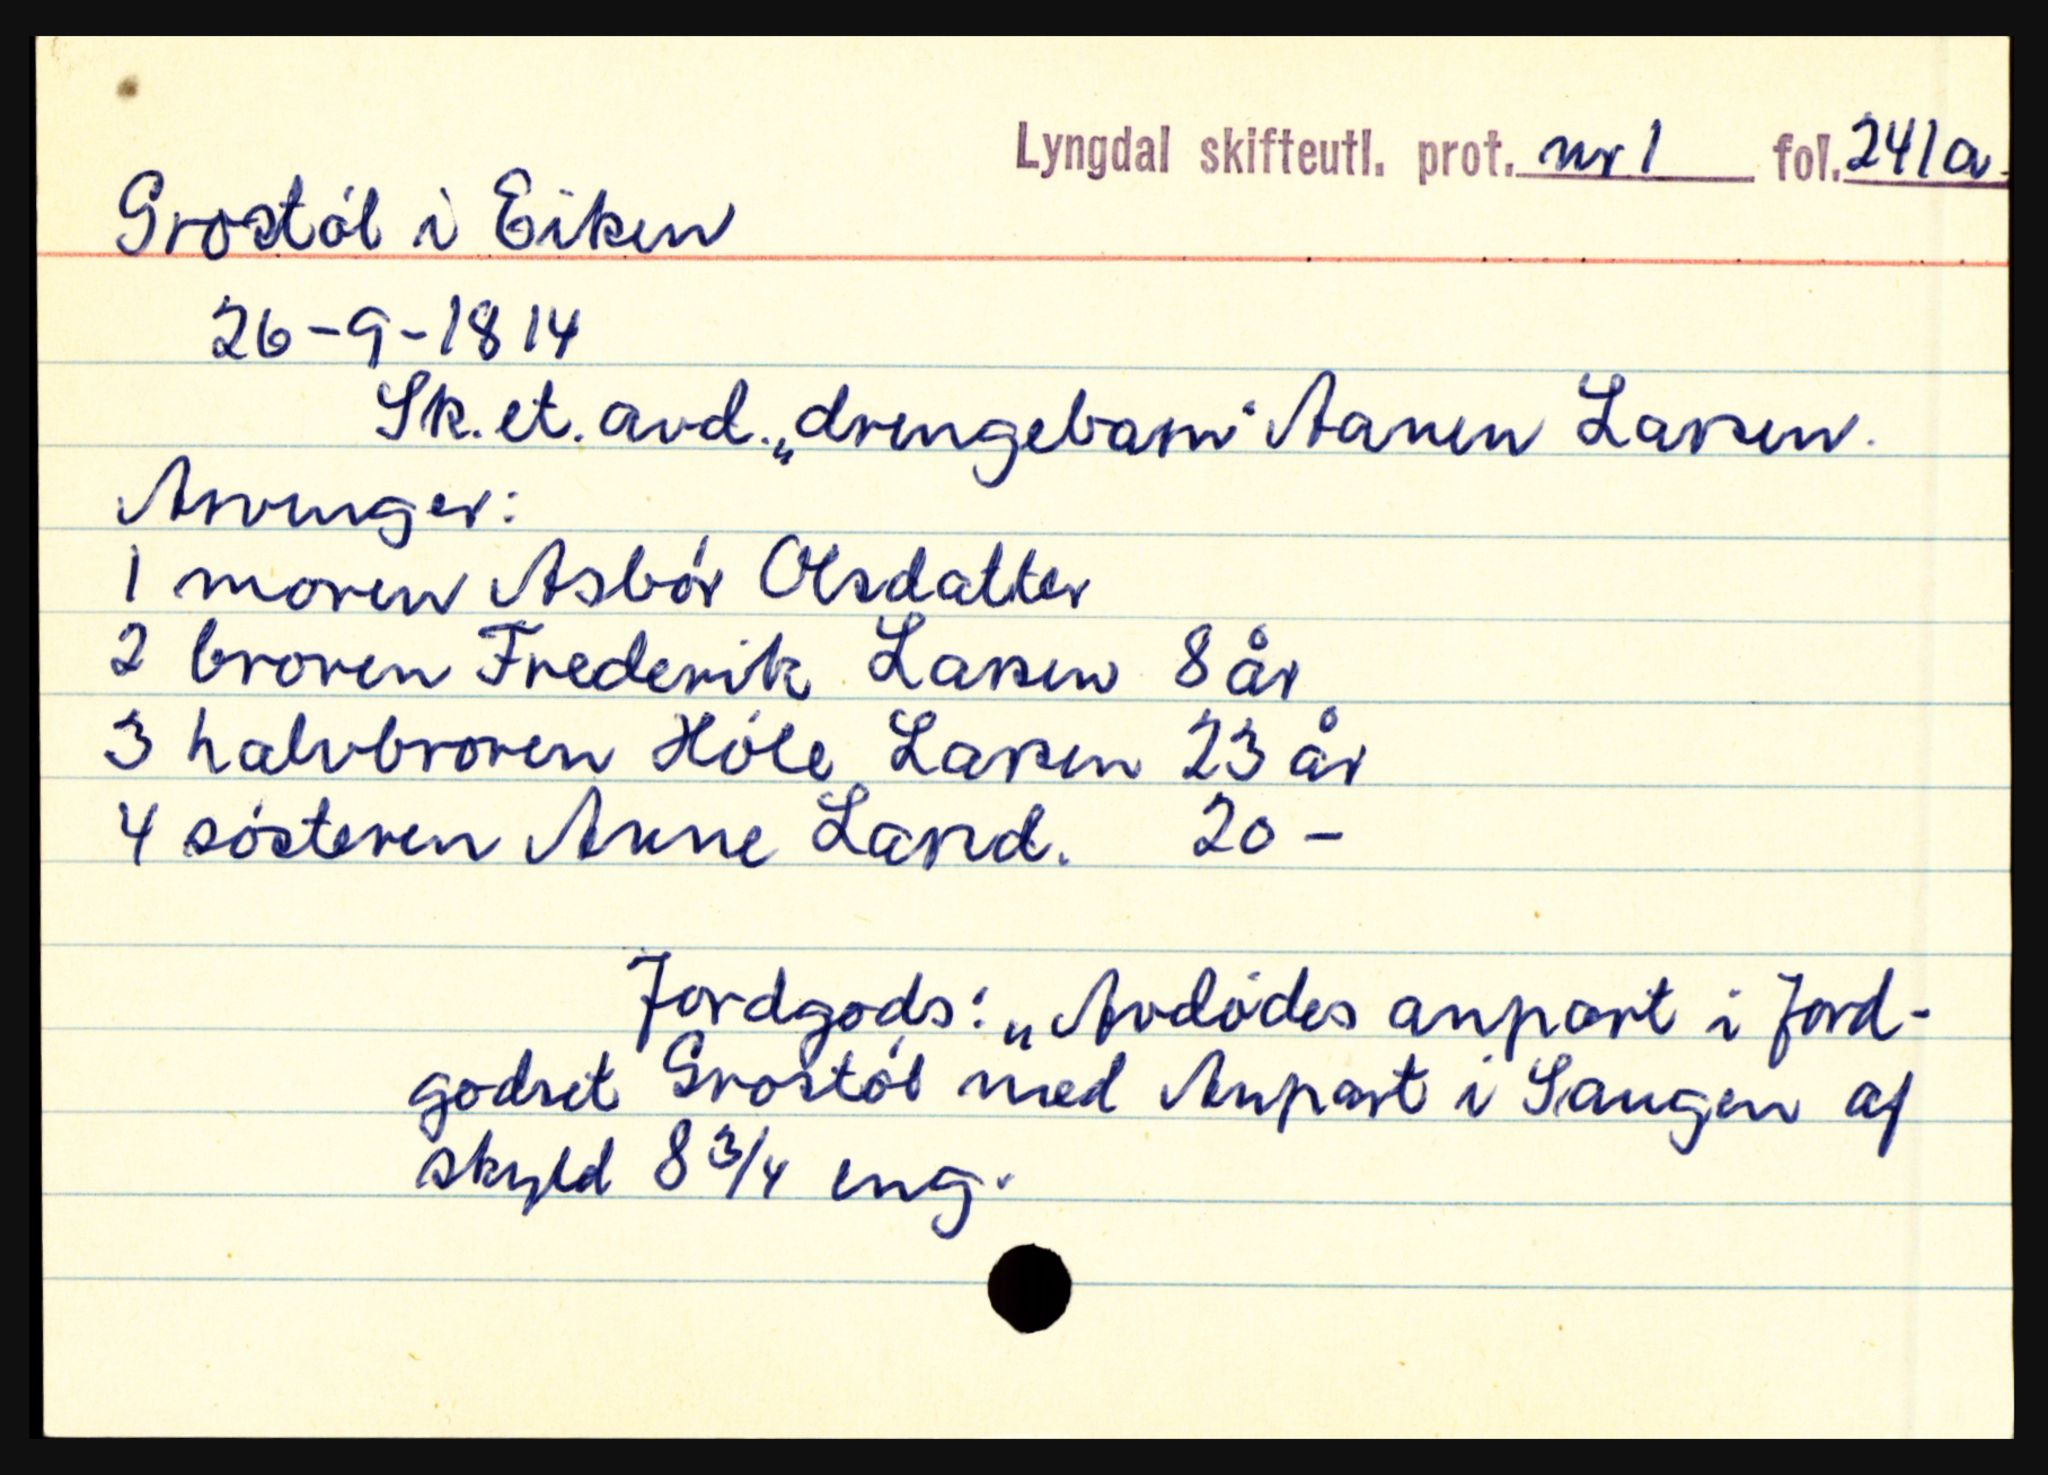 Lyngdal skifteutl. prot. nr 1 fol. 241a.
Grostøl i Eiken
26-9-1814
Sk. et. avd. „drengebarn" Aanen Larsen.
Arvinger:
1 moren Asbør Olsdatter
2 broren Frederik Larsen 8 år
3 halvbroren Høle Larsen 23 år
4 søsteren Anne Larsd. 20 -
Jordgods: „Avdødes anpart i Jord-
godset Grostøl med Anpart i Saugen af
skyld 8 3/4 eng.